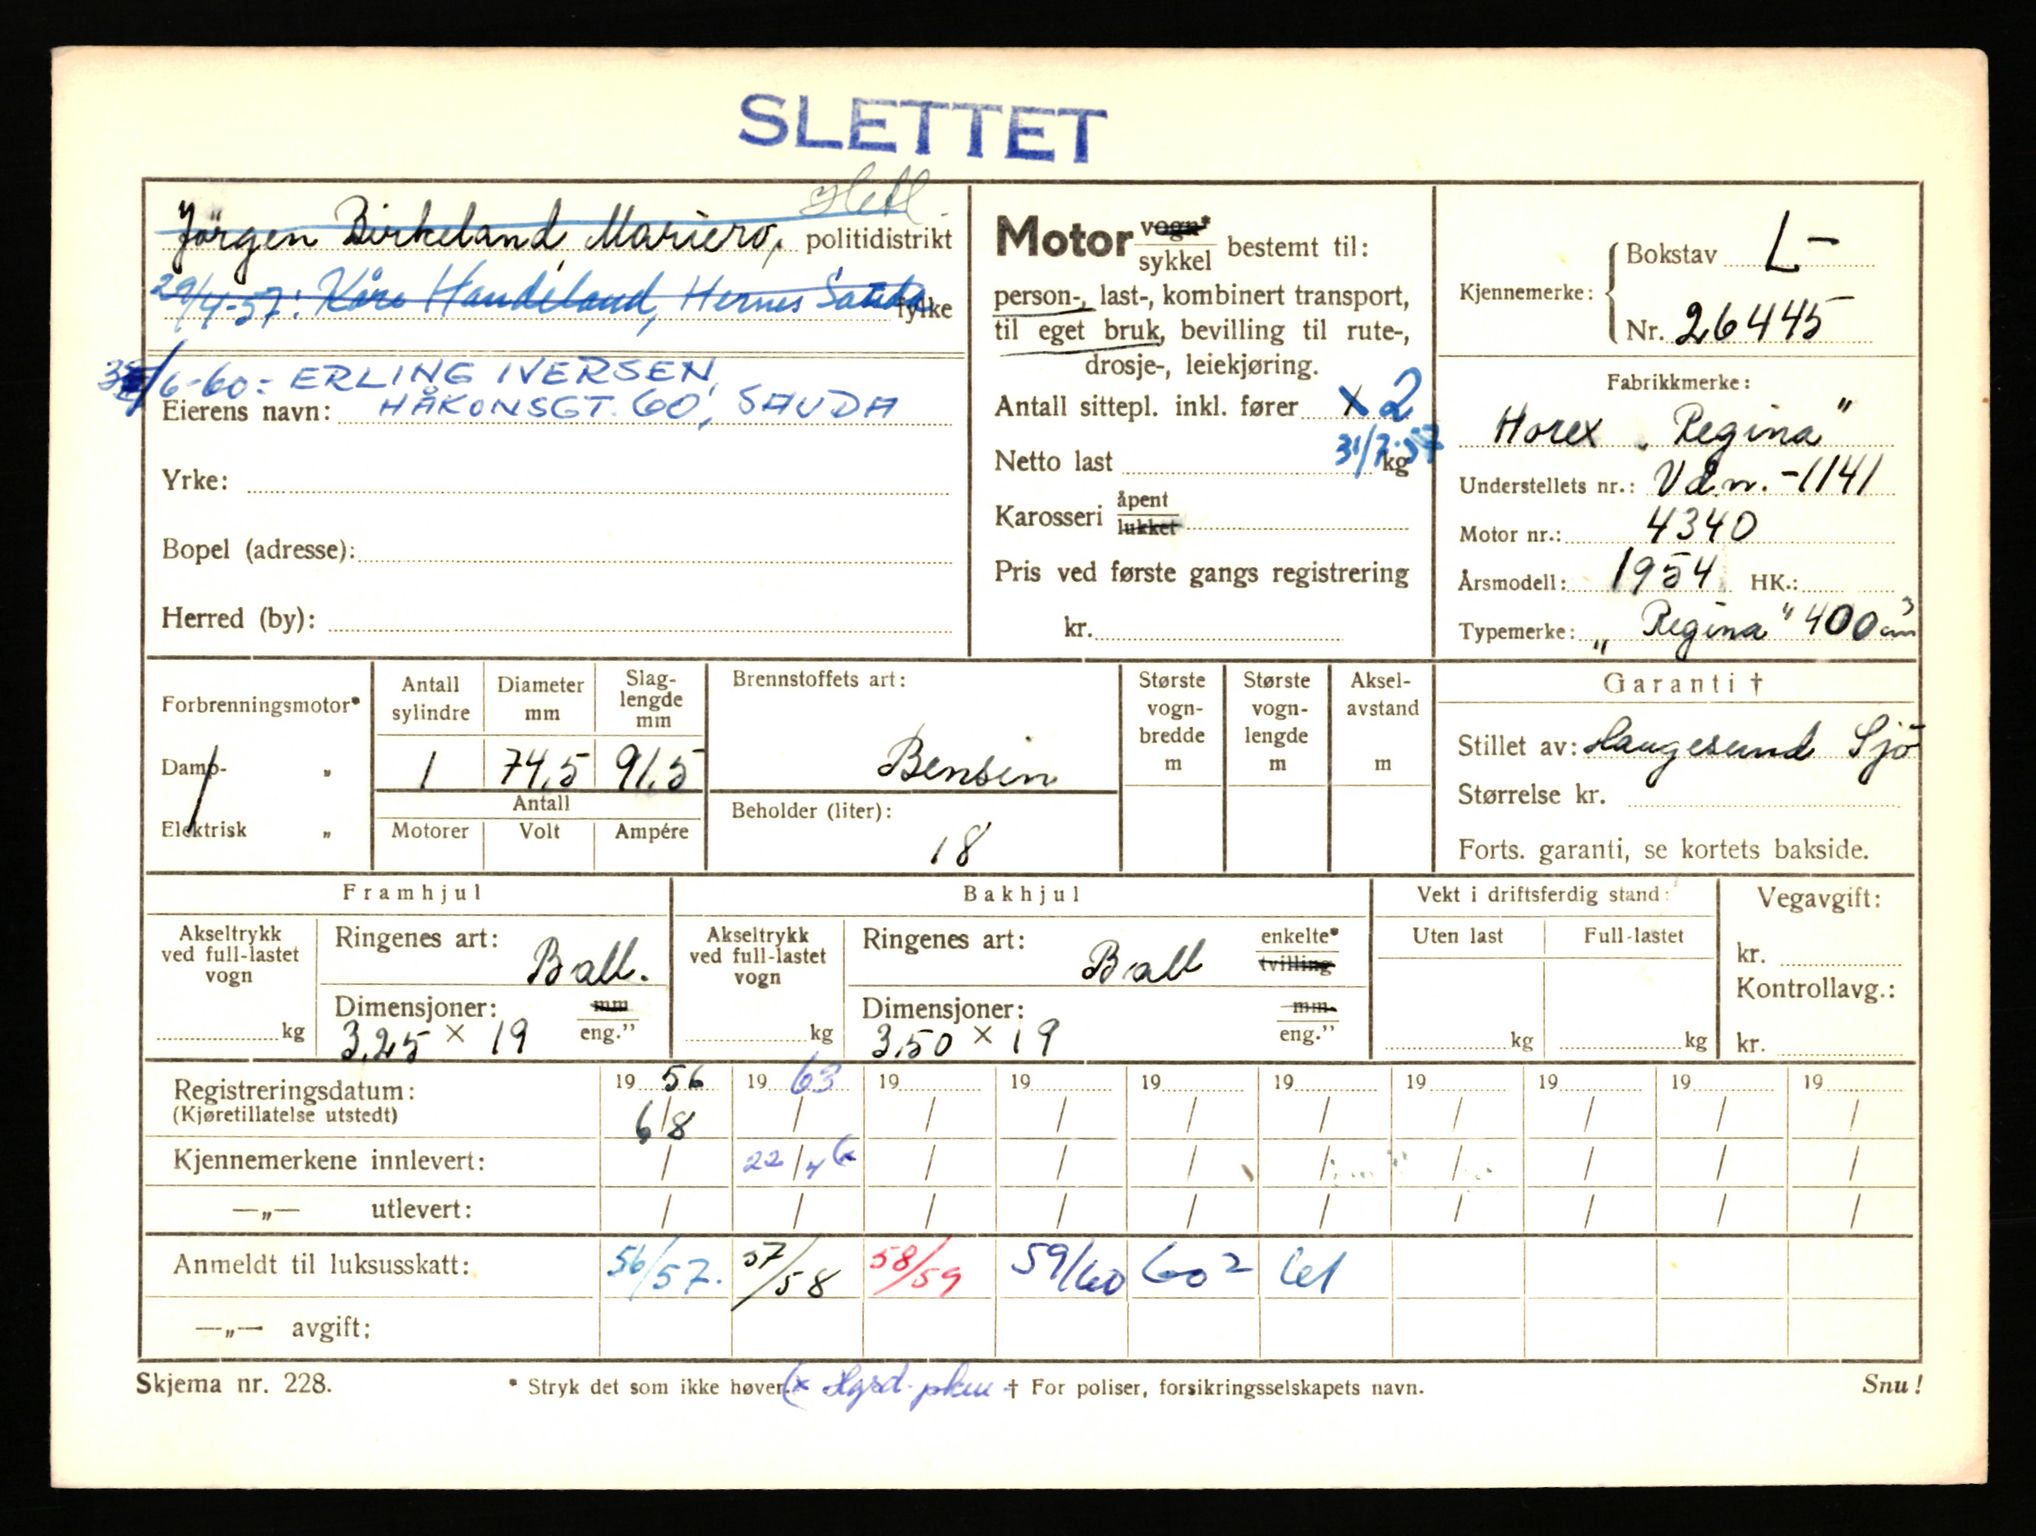 SLETTET
Jörgen Birkeland, Mariero, politidistrikt
29/4-57: Kåre Handeland, Hernes Sauda fylke
/6-60: ERLING IVERSEN,
Eierens navn: HÅKONSGT. 60, SAUDA
Yrke:
Bopel (adresse):
Herred (by):
Motor vogn* sykkel bestemt til:
person-, last-, kombinert transport,
til eget bruk, bevilling til rute-,
drosje-, leiekjøring.
Antall sittepl. inkl. fører x 2
31/7-57
Netto last kg
Karosseri åpent lukket
Pris ved første gangs registrering
kr.
Kjennemerke: Bokstav L-
Nr. 26445
Fabrikkmerke:
Horex „Regina"
Understellets nr.: Vdn. -1141
Motor nr.: 4340
Årsmodell: 1954 HK.:
Typemerke: „Regina" 400 cm³
Forbrenningsmotor*
Damp- „
Elektrisk „
Antall sylindre
Diameter mm
Slag-lengde mm
1 74,5 91,5
Antall
Motorer Volt Ampére
Brennstoffets art:
Bensin
Beholder (liter):
18
Største vogn-bredde m
Største vogn-lengde m
Aksel-avstand m
Garanti †
Stillet av: Haugesund Sjö
Størrelse kr.
Forts. garanti, se kortets bakside.
Framhjul
Akseltrykk ved full-lastet vogn
kg
Ringenes art: Ball.
Dimensjoner: mm eng."
3,25 x 19
Bakhjul
Akseltrykk ved full-lastet vogn
kg
Ringenes art: Ball enkelte* tvilling
Dimensjoner: mm. eng."
3,50 x 19
Vekt i driftsferdig stand:
Uten last Full-lastet
kg kg
Vegavgift:
kr.
Kontrollavg.:
kr.
Registreringsdatum: 19 56 19 63 19 19 19 19 19 19 19 19
(Kjøretillatelse utstedt) 6/8 / / / / / / / / /
Kjennemerkene innlevert: / 22/4 (x / / / / / / / /
—„— utlevert: / / / / / / / / / /
Anmeldt til luksusskatt: 56/57. 57/58 58/59 59/60 60² 61
—„— avgift:
Skjema nr. 228. * Stryk det som ikke høver. (x Hgsd. pkm † For poliser, forsikringsselskapets navn. Snu!